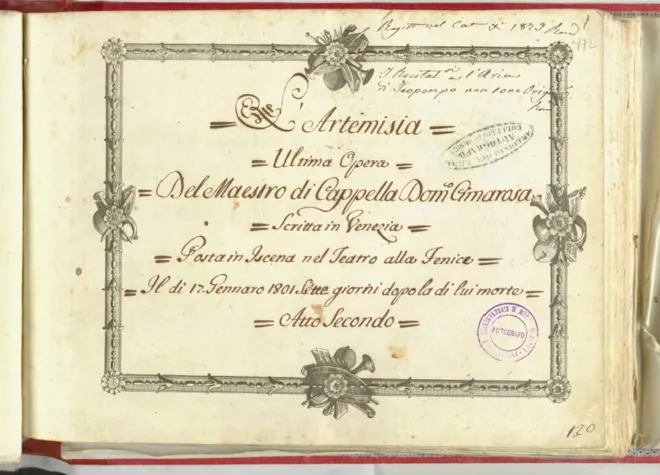 Regtº nel Cat X 1879
I Recitat.ni e l'Aria
di Teopompo non sono Orig.
= L'Artemisia =
= Ultima Opera =
= Del Maestro di Cappella Domco Cimarosa =
= Scritta in Venezia =
= Posta in Iscena nel Teatro alla Fenice =
= Il di 17. Gennaro 1801. Sette giorni dopo la di lui morte =
= Atto Secondo =
AUTOGRAFO
120